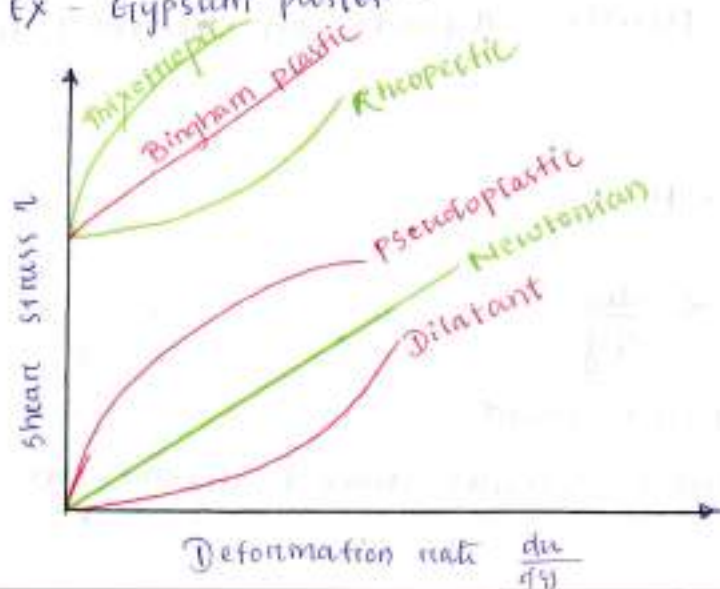 Ex - Gypsum paste
Thixotropic
Bingham plastic
Rheopectic
Pseudoplastic
Newtonian
Dilatant
shear stress τ
Deformation rate du
dy